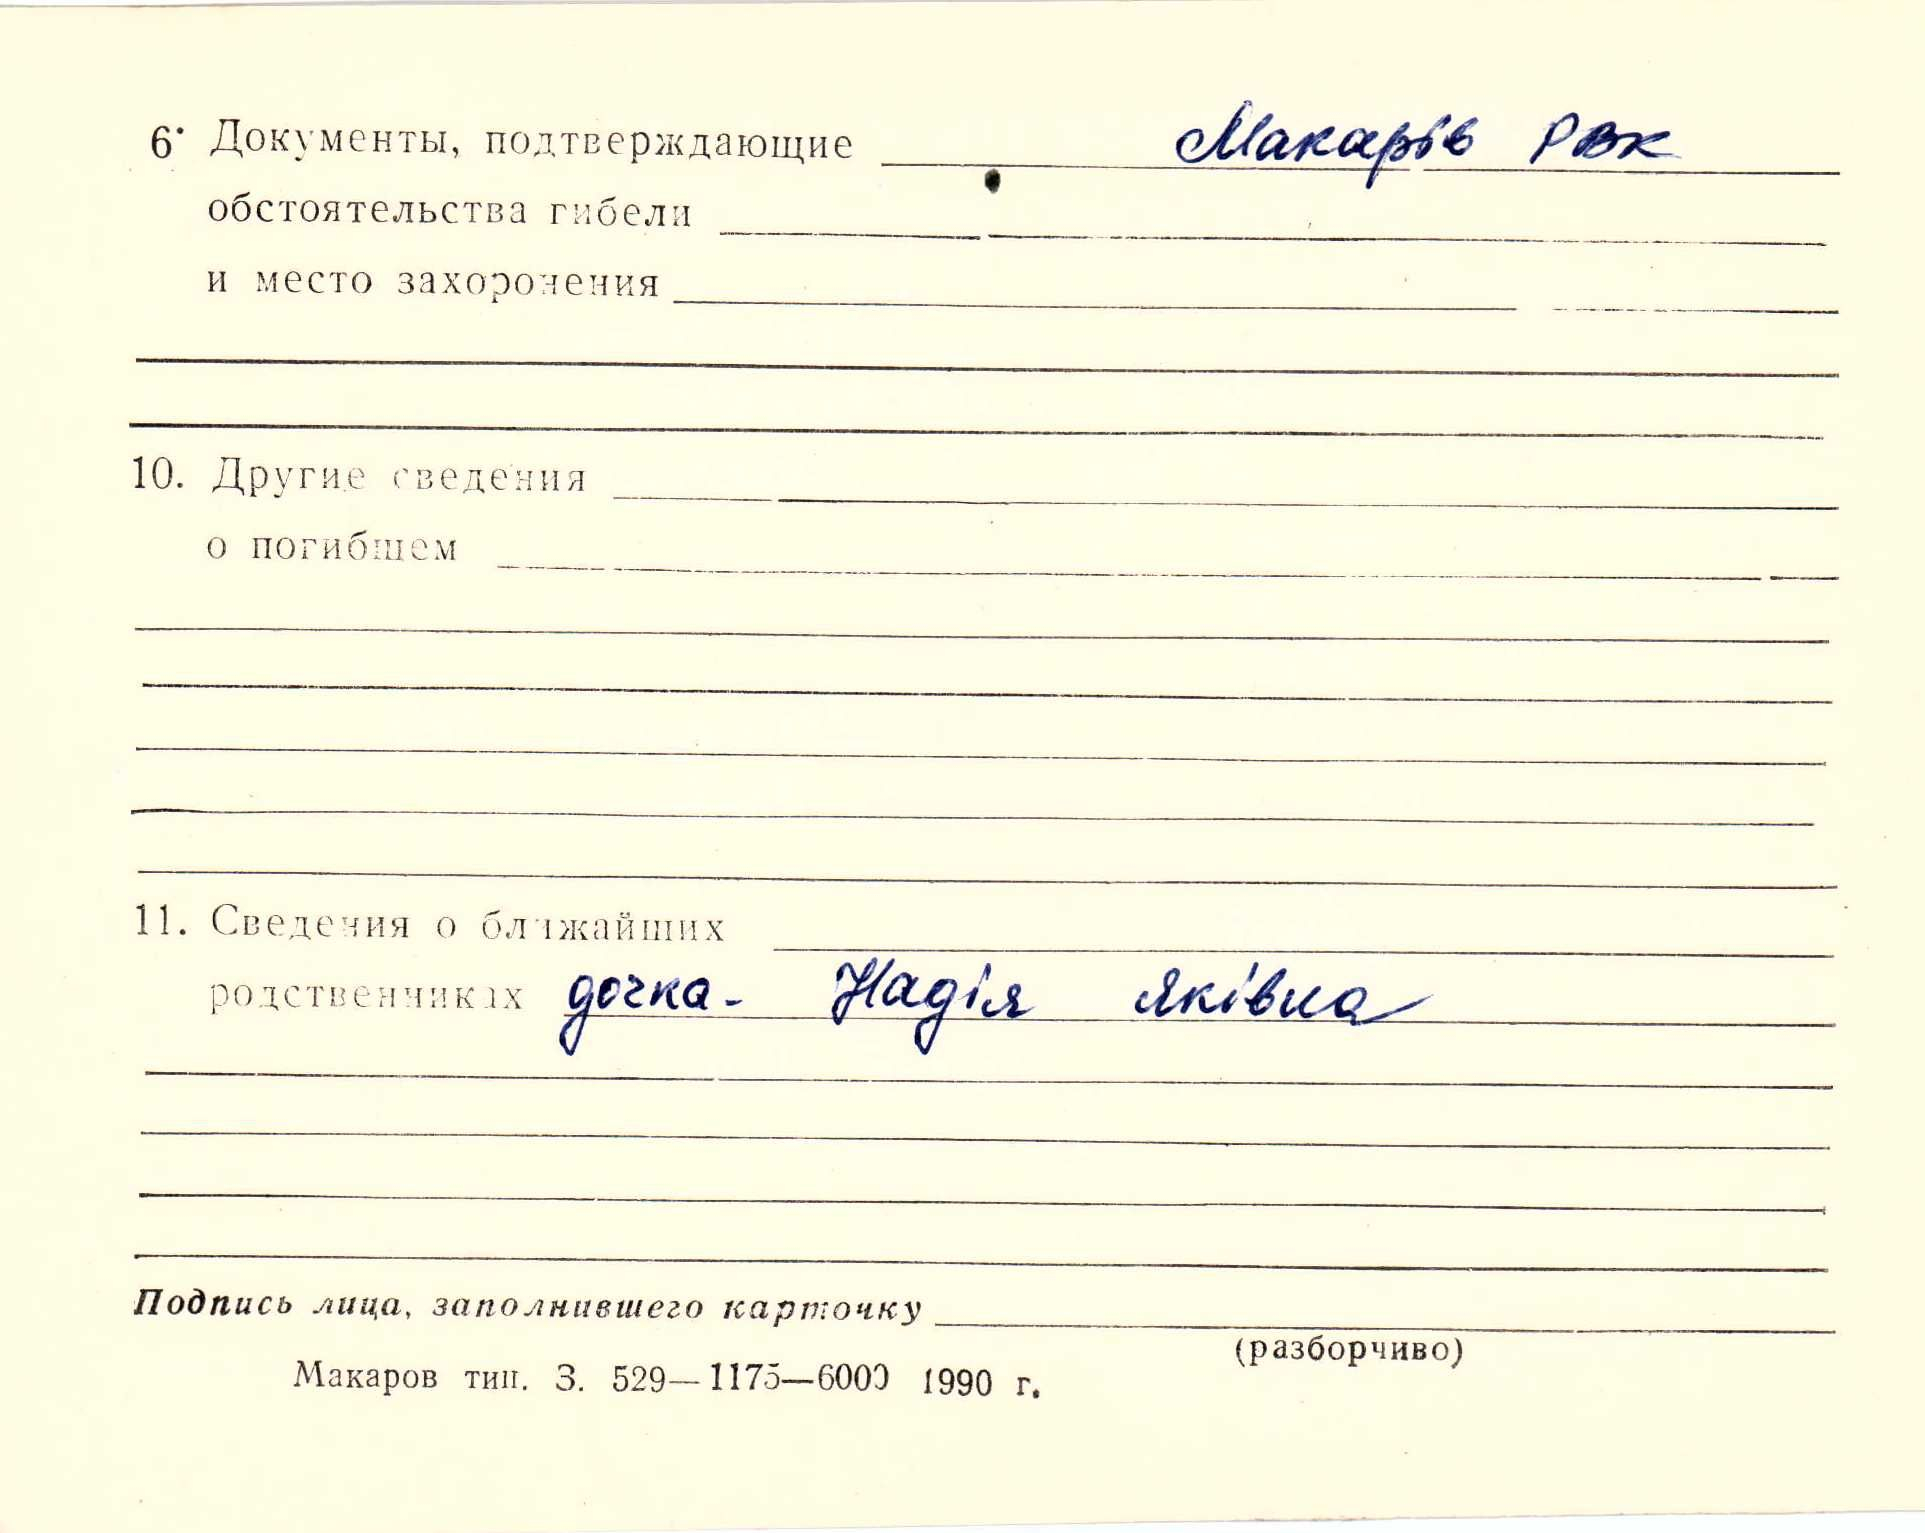 6. Документы, подтверждающие Макарів РВК
обстоятельства гибели
и место захоронения
10. Другие сведения
о погибшем
11. Сведения о ближайших
родственниках дочка - Надія Яківна
Подпись лица, заполнившего карточку
(разборчиво)
Макаров тип. З. 529—1175—6000 1990 г.